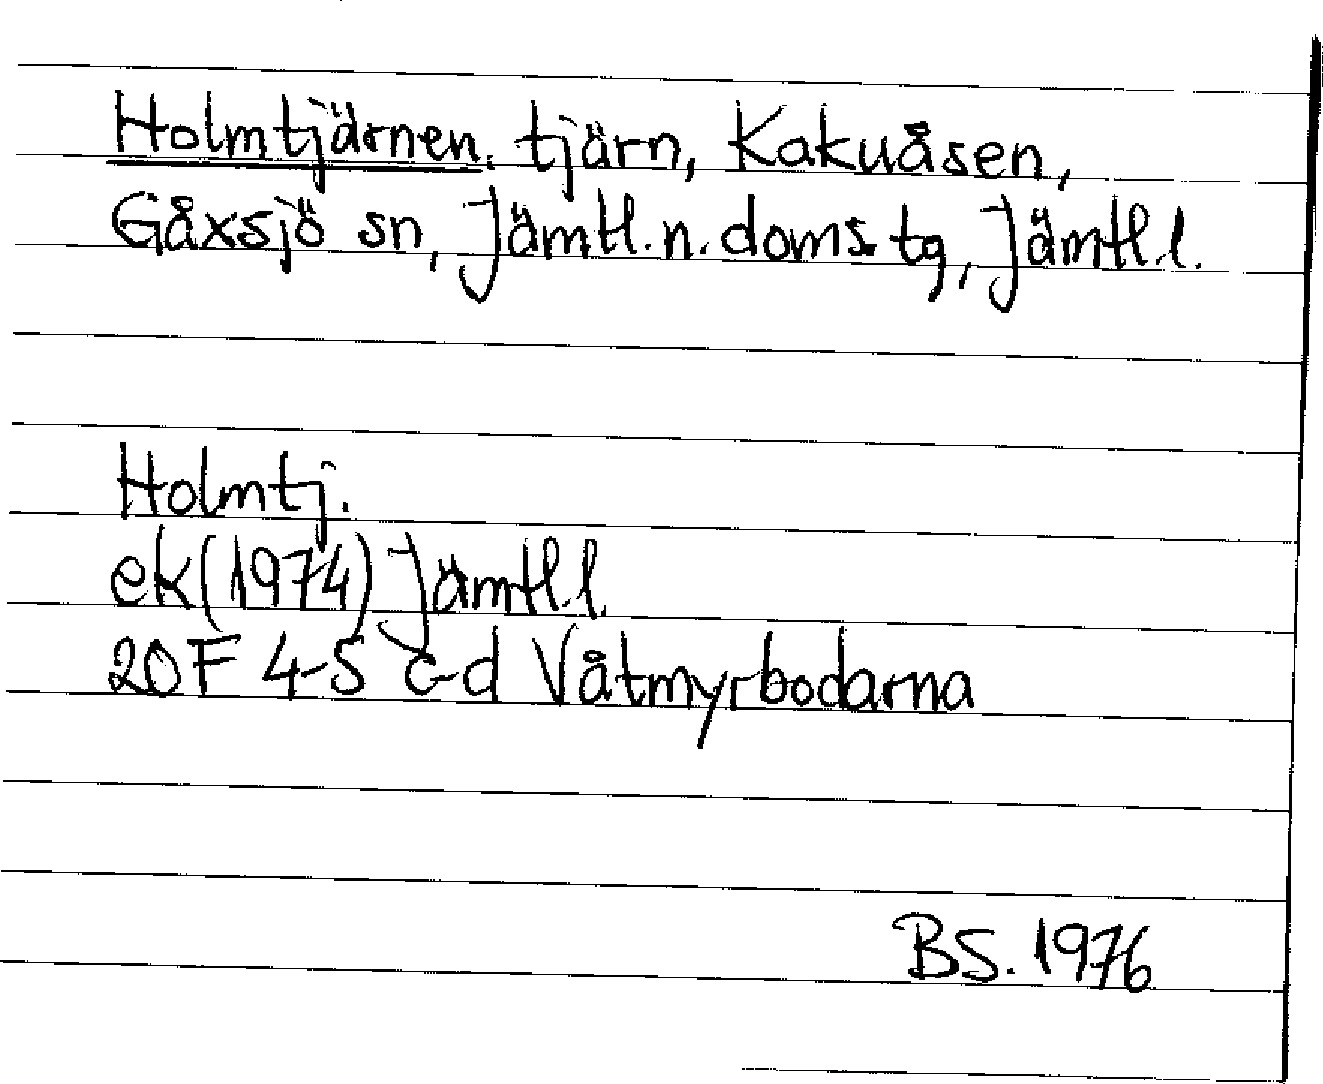 Holmtjärnen, tjärn, Kakuåsen,
Gåxsjö sn, Jämtl. n. doms. tg, Jämtl.l.
Holmtj.
ek(1974) Jämtl.l.
20F 4-5 c-d Våtmyrbodarna
BS. 1976